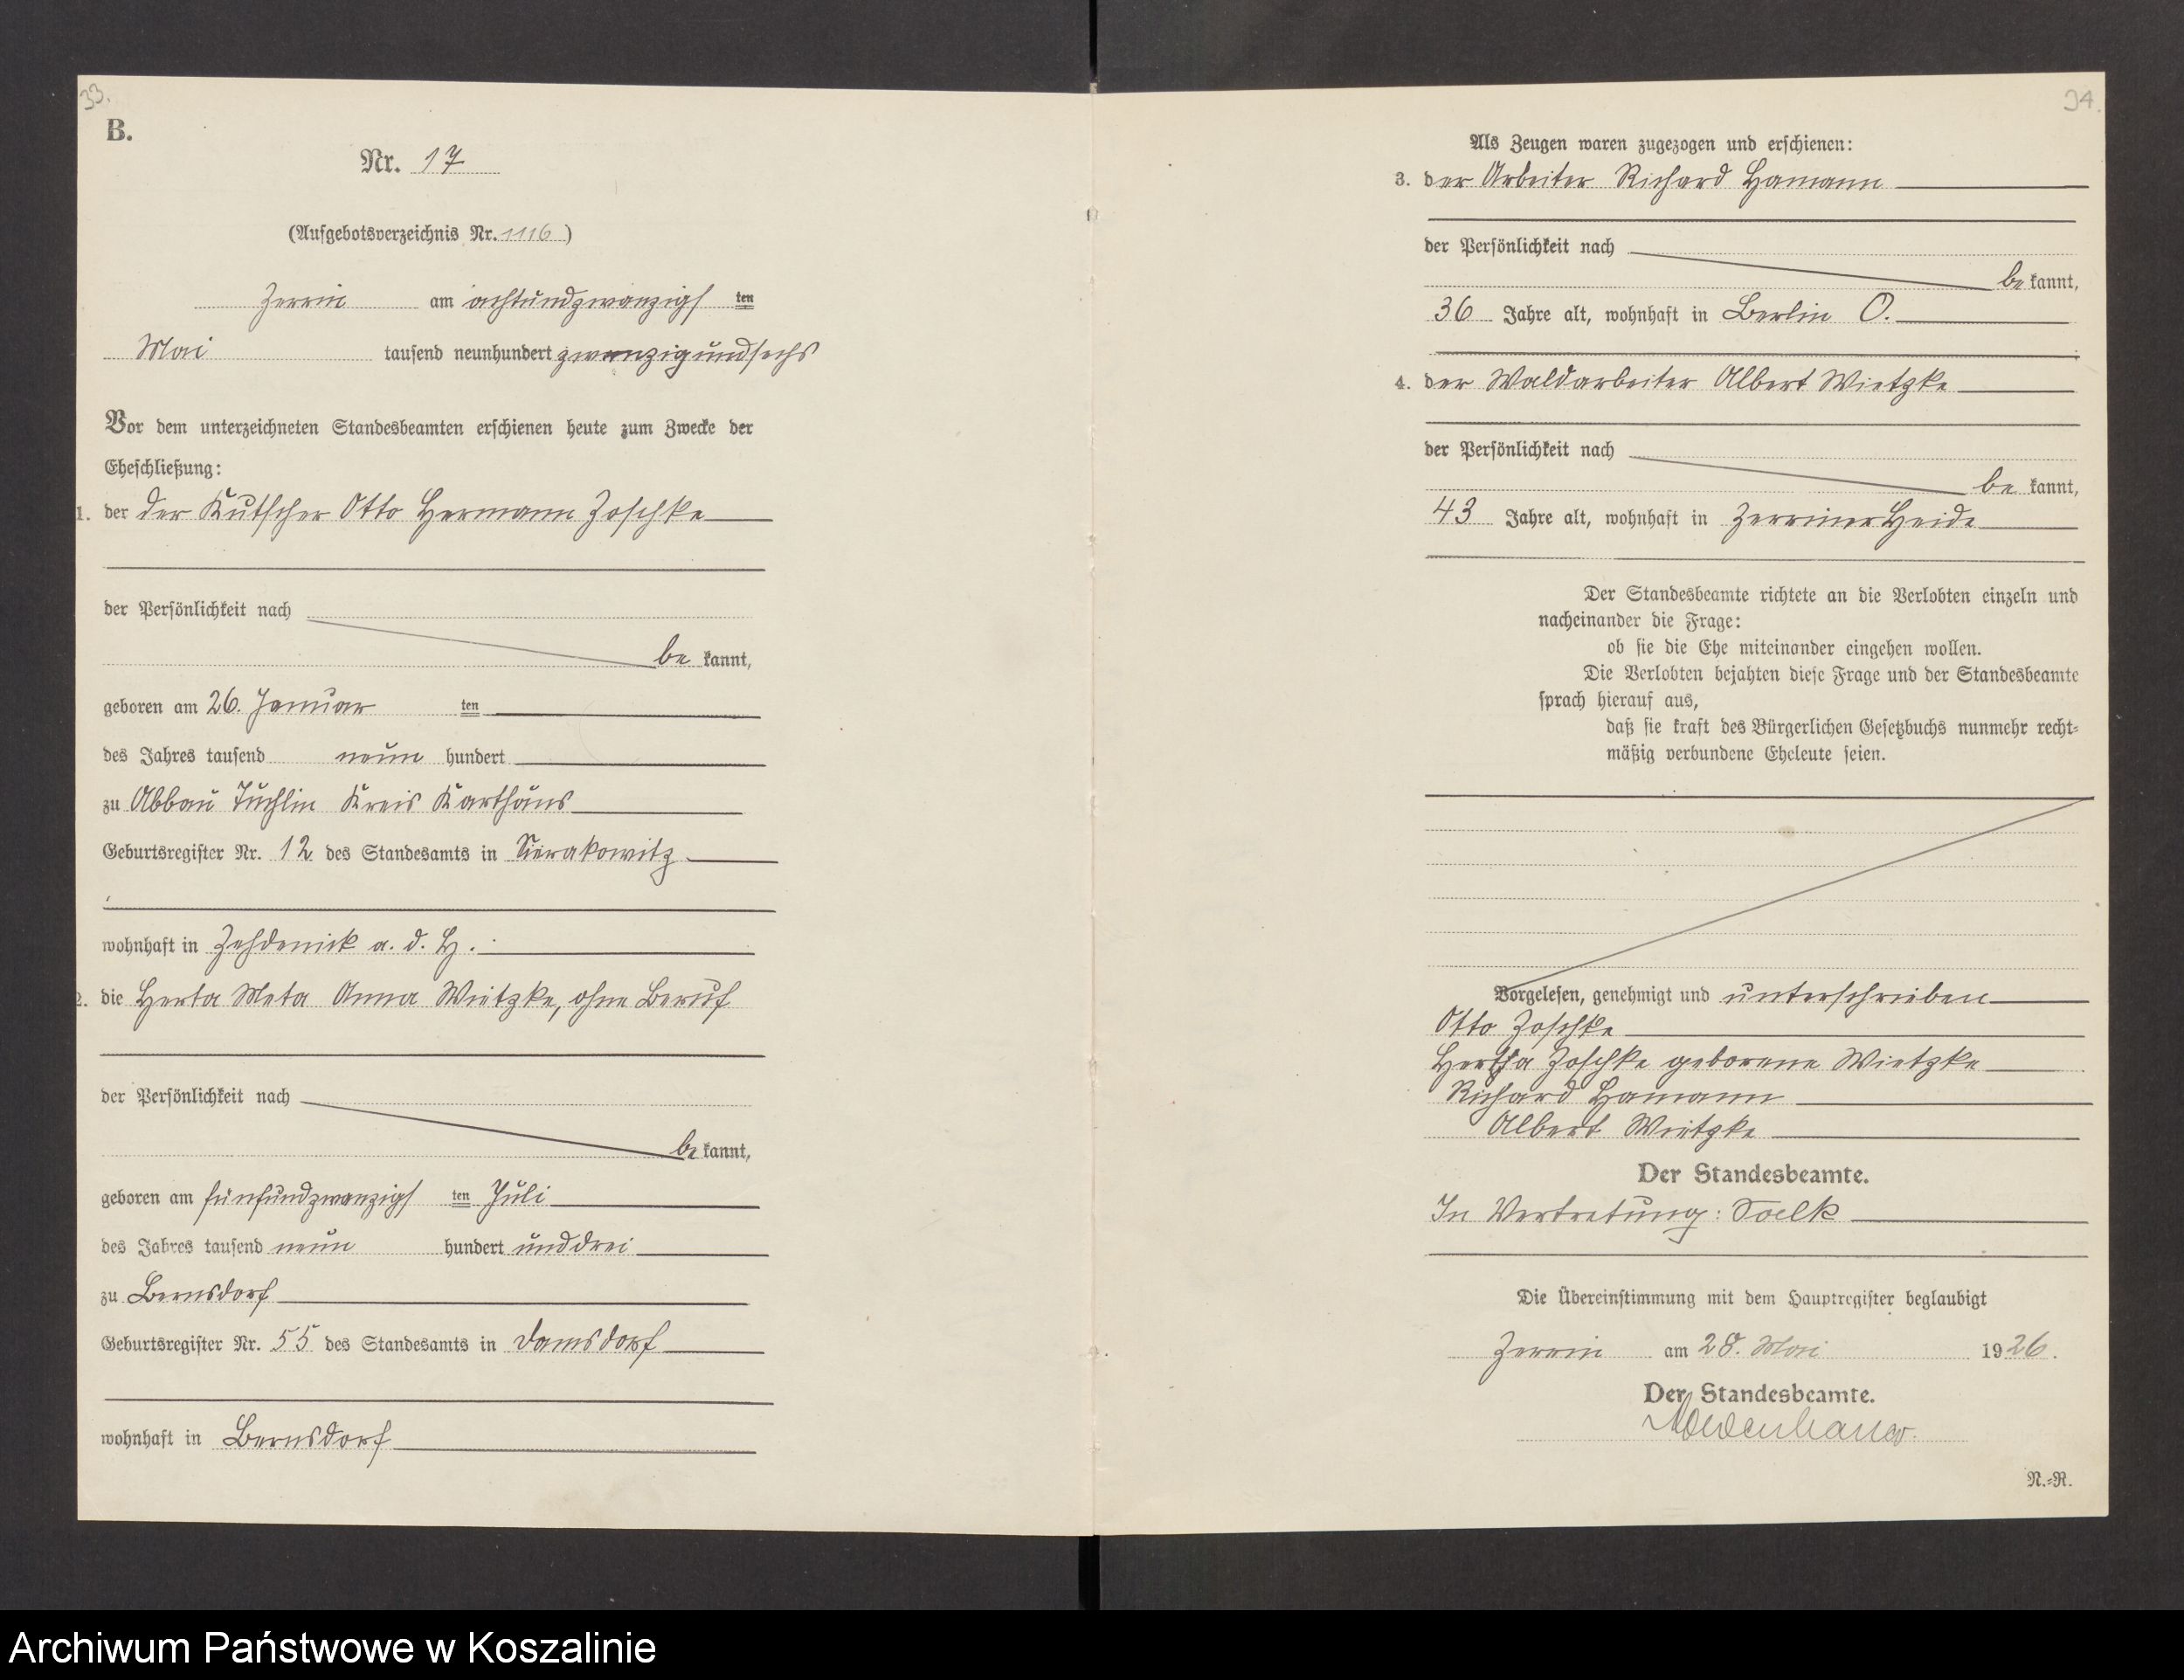 33.
B.
Nr. 17
(Aufgebotsverzeichnis Nr. 1116)
Zerrin am achtundzwanzigs ten
Mai tausend neunhundert zwanzigundsechs
Vor dem unterzeichneten Standesbeamten erschienen heute zum Zwecke der
Eheschließung:
1. der der Kutscher Otto Hermann Zoschke
der Persönlichkeit nach
be kannt,
geboren am 26. Januar ten
des Jahres tausend neun hundert
zu Abbau Tuchlin Kreis Karthaus
Geburtsregister Nr. 12 des Standesamts in Sierakowitz
wohnhaft in Zehdenick a. d. H.
2. die Herta Meta Anna Wietzke, ohne Beruf
der Persönlichkeit nach
be kannt,
geboren am fünfundzwanzigs ten Juli
des Jahres tausend neun hundert und drei
zu Bernsdorf
Geburtsregister Nr. 55 des Standesamts in Damsdorf
wohnhaft in Bernsdorf
34.
Als Zeugen waren zugezogen und erschienen:
3. der Arbeiter Richard Hamann
der Persönlichkeit nach
be kannt,
36 Jahre alt, wohnhaft in Berlin O.
4. der Waldarbeiter Albert Wietzke
der Persönlichkeit nach
be kannt,
43 Jahre alt, wohnhaft in Zerriner Heide
Der Standesbeamte richtete an die Verlobten einzeln und
nacheinander die Frage:
ob sie die Ehe miteinander eingehen wollen.
Die Verlobten bejahten diese Frage und der Standesbeamte
sprach hierauf aus,
daß sie kraft des Bürgerlichen Gesetzbuchs nunmehr recht-
mäßig verbundene Eheleute seien.
Vorgelesen, genehmigt und unterschrieben
Otto Zoschke
Hertha Zoschke geborene Wietzke
Richard Hamann
Albert Wietzke
Der Standesbeamte.
In Vertretung: Soelk
Die Übereinstimmung mit dem Hauptregister beglaubigt
Zerrin am 28. Mai 1926.
Der Standesbeamte.
N.-R.
Archiwum Państwowe w Koszalinie